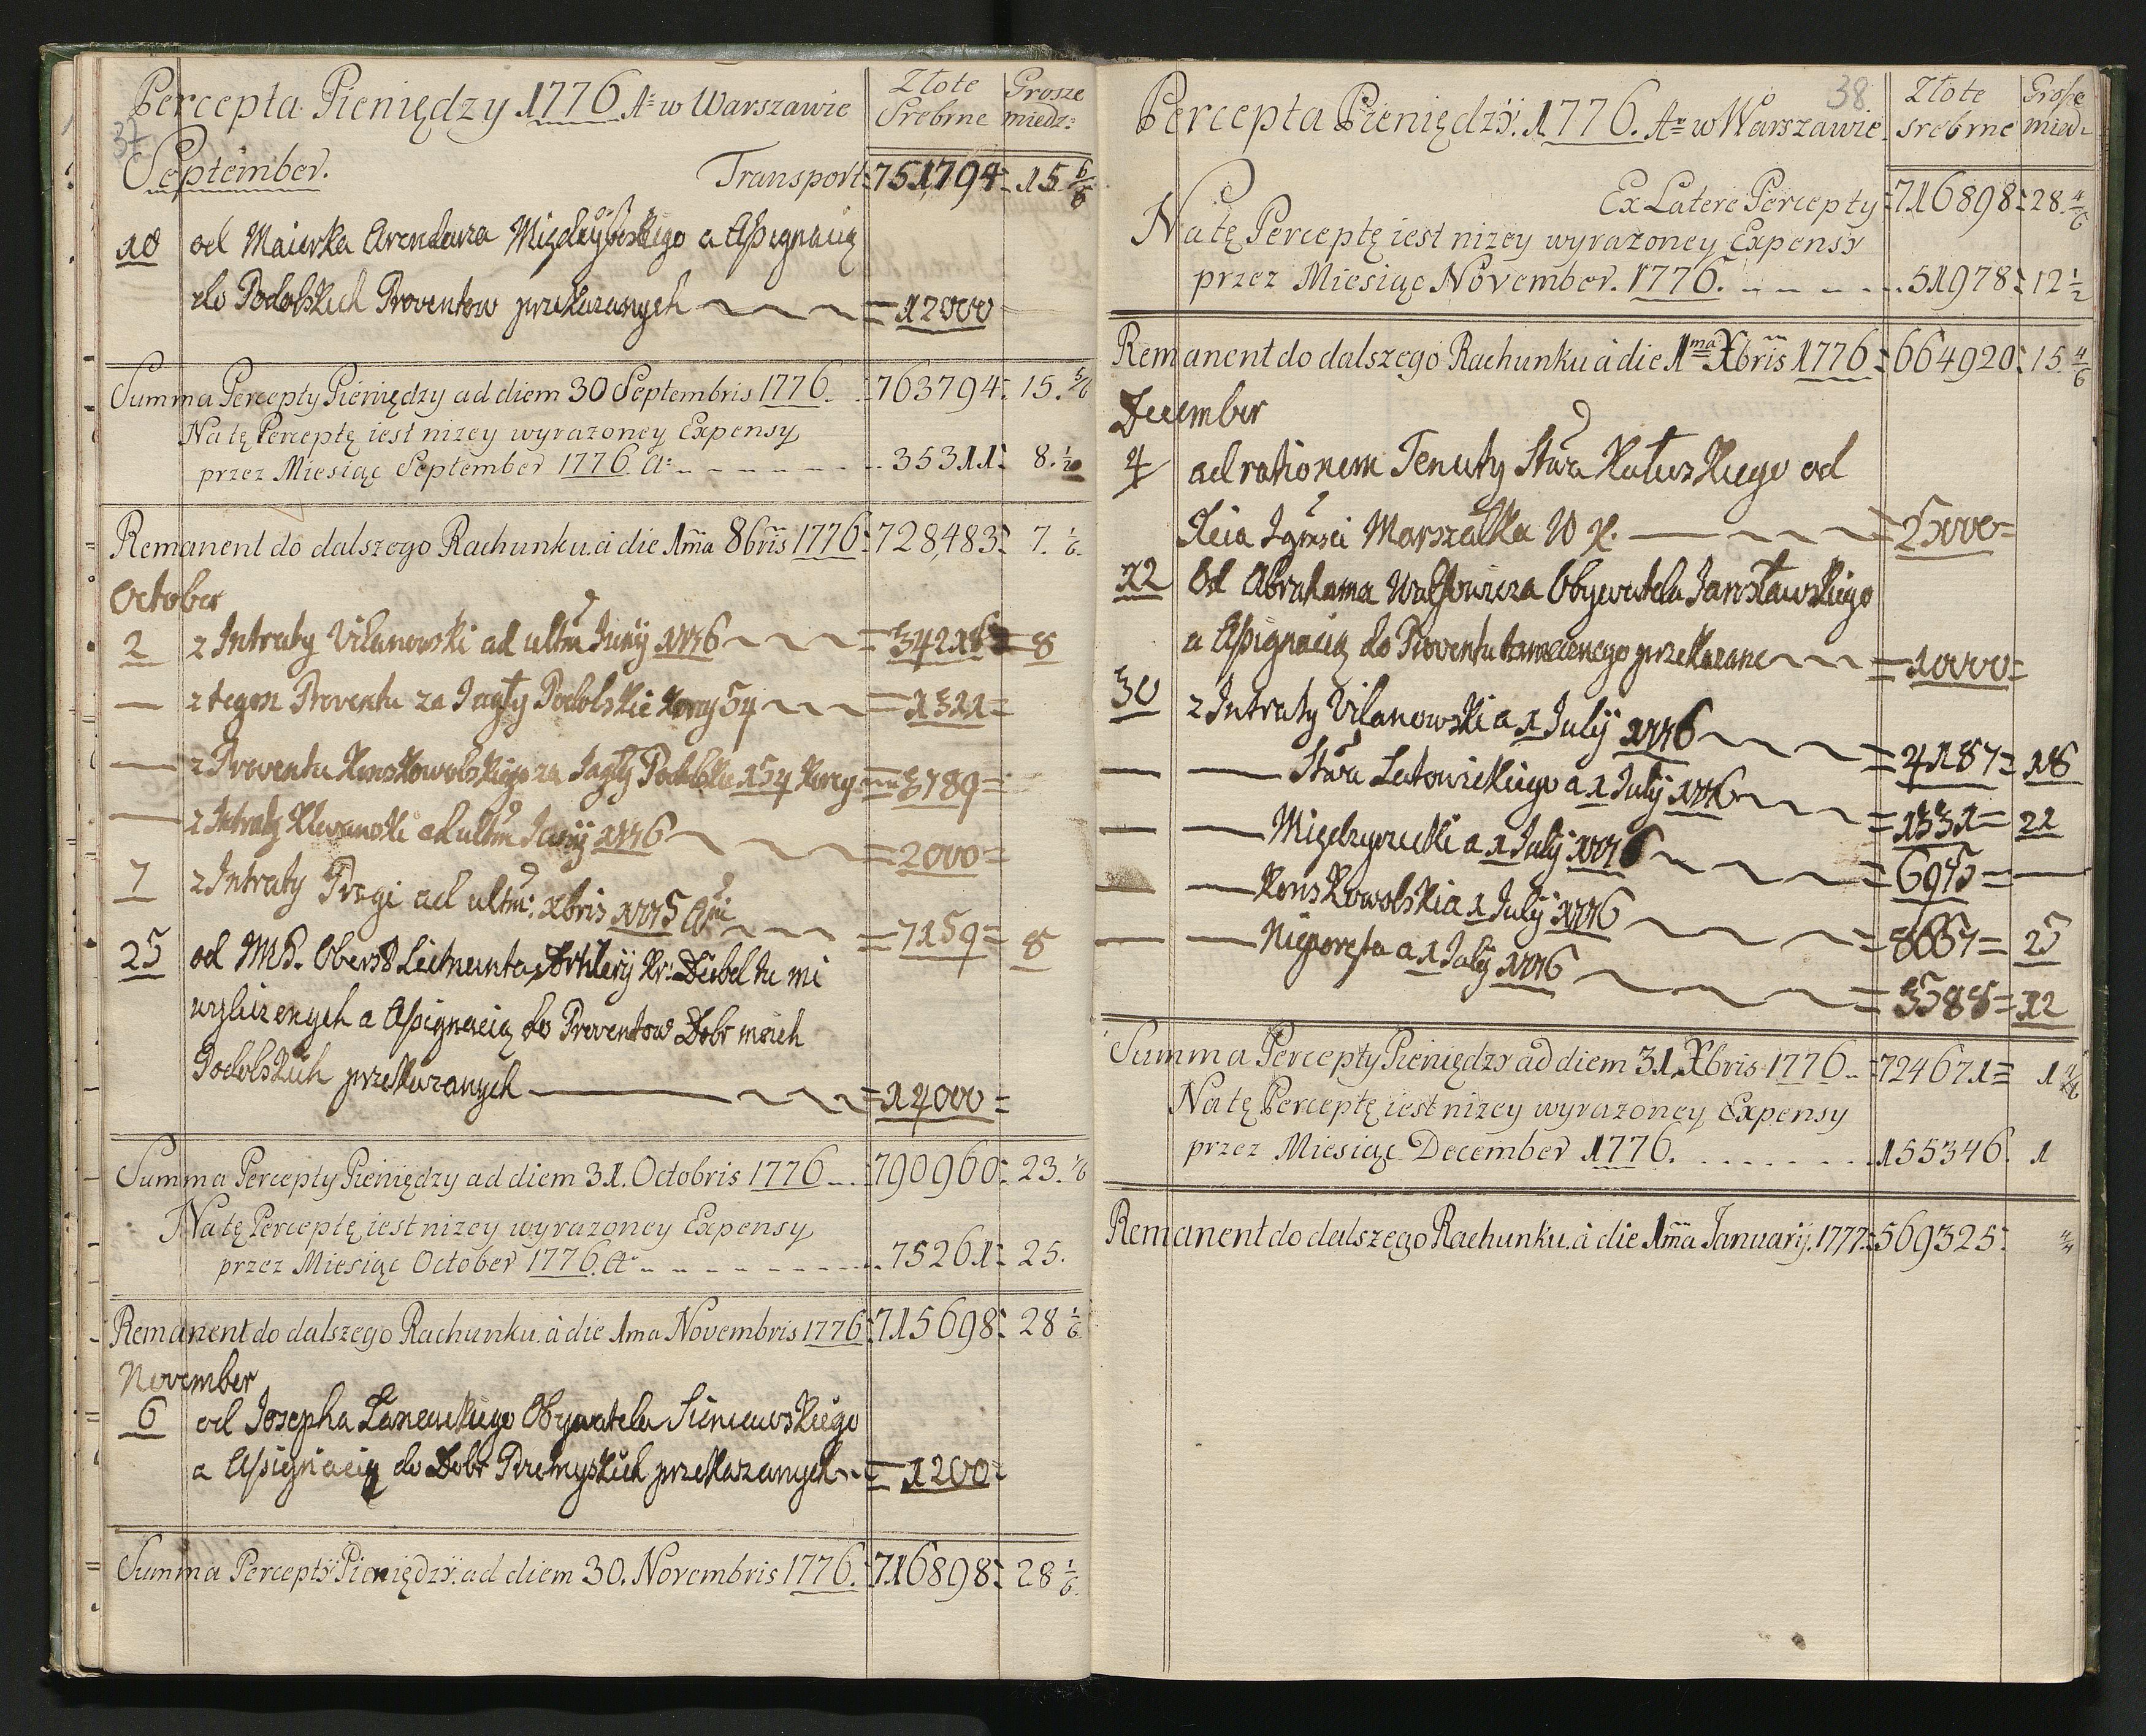 37
Percepta Pieniędzy 1776 Aº w Warszawie
Złote Srebrne
Grosze miedz:
September.
Transport 751794 15 5/6
18 od Maierka Arendarza Międzybożskiego a Assignacią
do Podolskich Proventow przekazanych 12000
Summa Percepty Pieniędzy ad diem 30 Septembris 1776. 763794. 15. 5/6
Na tę Perceptę iest nizey wyrazoney Expensy
przez Miesiąc September 1776. A: 35311: 8.
Remanent do dalszego Rachunku à die 1ma 8bris 1776 728,483: 7. 1/6.
October
2 z Intraty Vilanowski ad ultm Junÿ 1776 34218 8
— z tegoz Proventu za Jagły Podolskie Korcy 54 1311
— z Proventu Konskowolskiego za Jagły Podolskie 154 Korcy 3789
— z Intraty Klewanski ad ultm Junÿ 1776 2000
7 z Intraty Pragi ad ultm: xbris 1775 Ani 7159 8
25 od MP. Oberst Leitnanta Artilerÿ Kr: Deibel tu mi
wyliczonych a Assignacią do Proventow Dobr moich
Podolskich przekazanych 14000
Summa Percepty Pieniędzy ad diem 31. Octobris 1776 790960: 23. 1/6
Na tę Perceptę iest nizey wyrazoney Expensy
przez Miesiąc October 1776. A: 75261: 25.
Remanent do dalszego Rachunku à die 1ma Novembris 1776 715698: 28 1/6.
November
6 od Josepha Obywatela Sieniawskiego
a Assignacią do Dobr Premyskich przekazanych 1200
Summa Perceptÿ Pieniędzÿ. ad diem 30. Novembris 1776. 716898: 28 1/6.
38
Percepta Pieniędzÿ. 1776. Aº w Warszawie
Złote srebrne
Grosze miedz
Ex Latere Percepty 716898: 28. 4/6
Na tę Perceptę iest nizey wyrazoney Expensÿ
przez Miesiąc November. 1776. 51978: 12 1/2
Remanent do dalszego Rachunku à die 1ma Xbris 1776 664920: 15. 4/6
December
4 ad rationem Tenuty Stwa Kałuskiego od
Xcia Jgmsci Marszałka W K. 25000
22 Od Abrahama Obywatela Jarosławskiego
a Assignacią do Proventu tamecznego przekazane 1000
30 z Intraty Vilanowski a 1 Julÿ 1776 4187 18
— — Stwa Latowickiego a 1 Julÿ 1776 1331 22
— — Międzyrzecki a 1 Julÿ 1776 6975 —
— — Konskowolski a 1 Julÿ 1776 8667 25
— — Nieporęta a 1 Julÿ 1776 3588 12
Summa Percepty Pieniędzÿ ad diem 31. Xbris 1776 724671 1
Na tę Perceptę iest nizey wyrazoney Expensy
przez Miesiąc December 1776. 155346. 1
Remanent do dalszego Rachunku. à die 1ma Januarij. 1777. 569325: